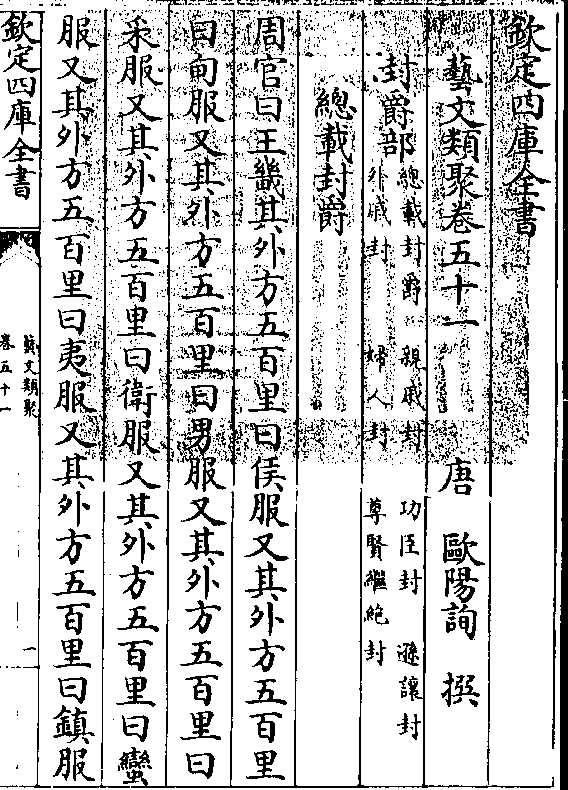 欽定四庫全書
藝文類聚卷五十一 唐 歐陽詢 撰
封爵部 總載封爵 親戚封 功臣封 遜讓封
外戚封 婦人封 尊賢繼絶封
總載封爵
周官曰王畿其外方五百里曰侯服又其外方五百里
曰甸服又其外方五百里曰男服又其外方五百里曰
采服又其外方五百里曰衛服又其外方五百里曰蠻
服又其外方五百里曰夷服又其外方五百里曰鎮服
欽定四庫全書
藝文類聚
卷五十一
一